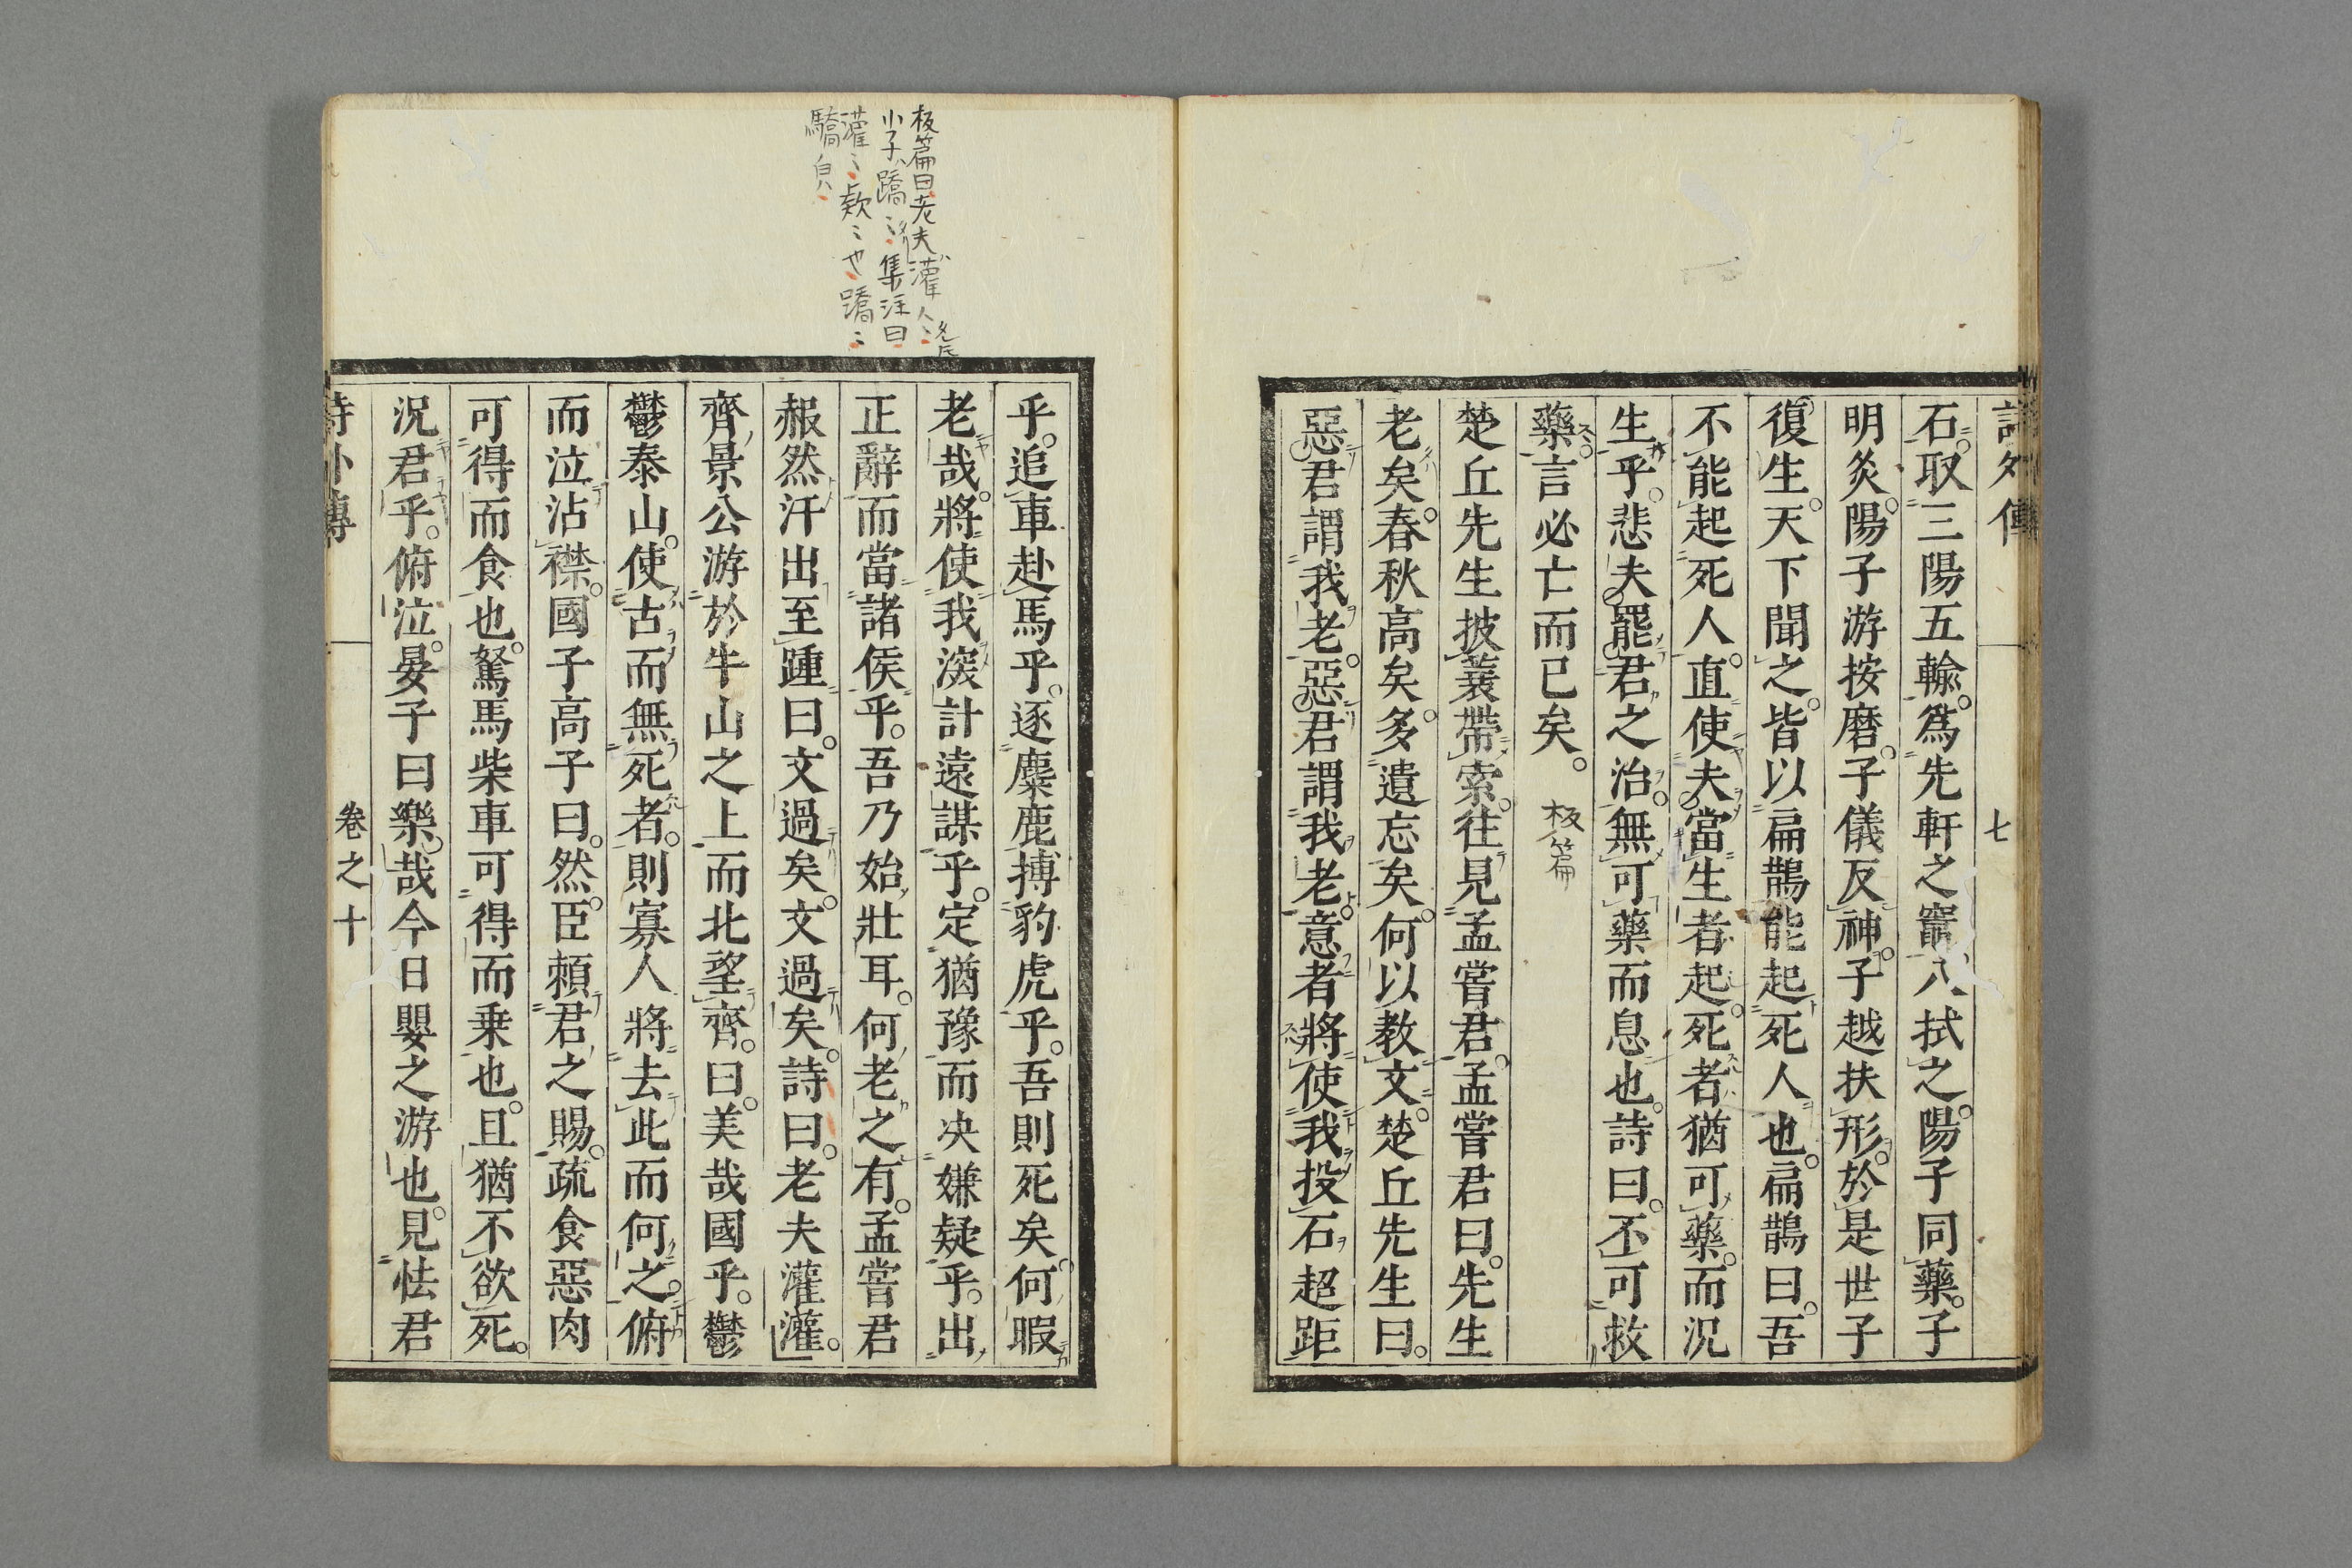 詩外傳 七
石。取三陽五輸。爲先軒之竈八拭之。陽子同藥。子
明灸。陽子游按磨。子儀反神。子越扶形。於是世子
復生。天下聞之。皆以扁鵲能起死人也。扁鵲曰。吾
不能起死人。直使夫當生者起。死者猶可藥。而況
生乎。悲夫罷君之治。無可藥而息也。詩曰。不可救
藥。言必亡而已矣。
板篇
楚丘先生披蓑帶索。往見孟嘗君。孟嘗君曰。先生
老矣。春秋高矣。多遺忘矣。何以教文。楚丘先生曰。
惡君謂我老。惡君謂我老。意者將使我投石超距
乎。追車赴馬乎。逐麋鹿搏豹虎乎。吾則死矣。何暇
老哉。將使我深計遠謀乎。定猶豫而决嫌疑乎。出
正辭而當諸侯乎。吾乃始壯耳。何老之有。孟嘗君
赧然汗出至踵曰。文過矣。文過矣。詩曰。老夫灌灌。
齊景公游於牛山之上而北望齊。曰。美哉國乎。鬱
鬱泰山。使古而無死者。則寡人將去此而何之。俯
而泣沾襟。國子高子曰。然。臣賴君之賜。疏食惡肉
可得而食也。駑馬柴車可得而乗也。且猶不欲死。
況君乎。俯泣。晏子曰。樂哉今日嬰之游也。見怯君
詩外傳 卷之十
板篇曰老夫灌〻
小子蹻〻集注曰
灌〻欵〻也蹻〻
驕皃